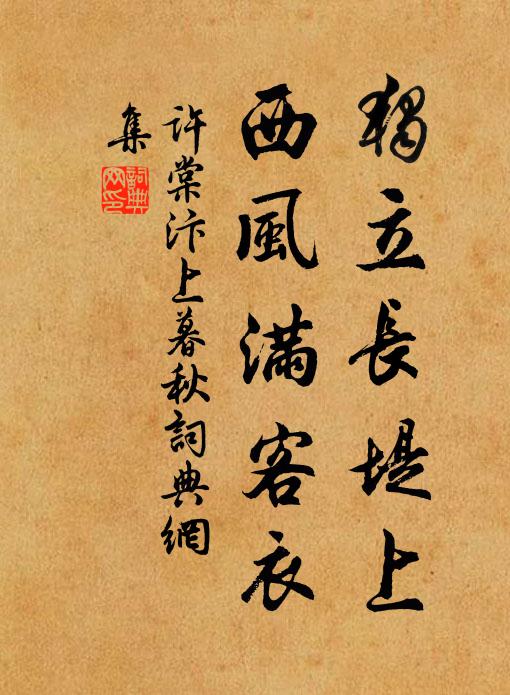 獨立長堤上
西風滿客衣
許棠汴上暮秋詞典網
集
詞典
网印